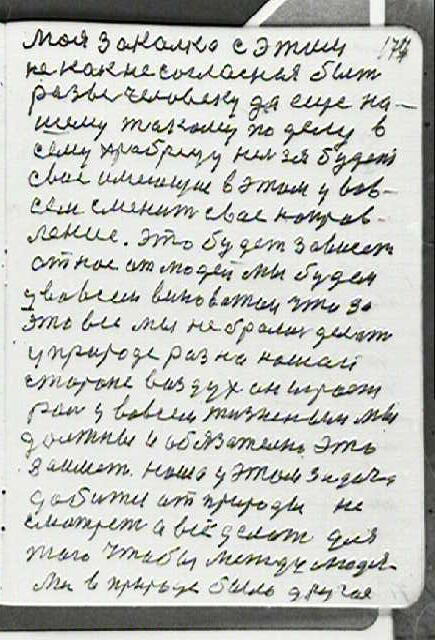 174
Моя закалка с этим
не как не согласная быт
разве человеку да еще на-
шему такому по делу в
сему храбрецу нельзя будет
свое имеющие в этом у вов-
сем сменит свое направ-
ление. Это будет зависет
от нас от людей мы будем
у вовсем виноватои что за
это все мы не брались делат
у природе раз на нашай
стороне воздух он играет
рол у вовсем жизненым мы
должны и обязателно это
занят. наша у этом задача
добится от природы не
смотрет а всё делат для
того чтобы между людя-
ми в природе было другое